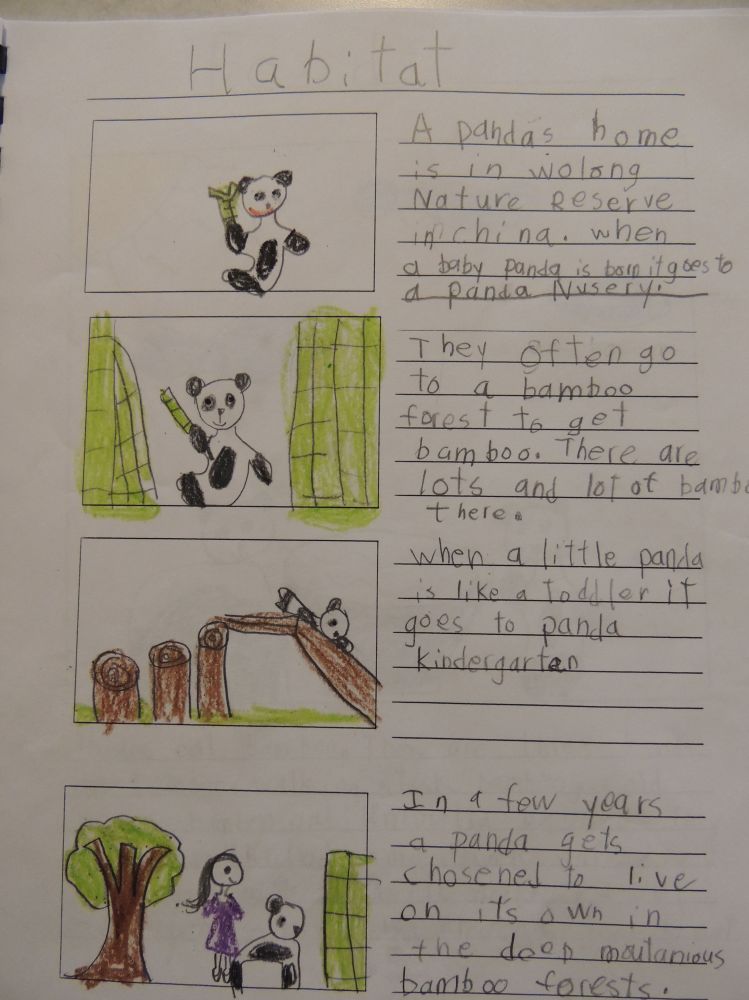 Habitat
A panda's home
is in wolong
Nature Reserve
in china. when
a baby panda is born it goes to
a panda Nusery.
They often go
to a bamboo
forest to get
bamboo. There are
lots and lot of bambo
there.
when a little panda
is like a toddler it
goes to panda
kindergartan
In a few years
a panda gets
chosened to live
on it's own in
the deep moutanious
bamboo forests.